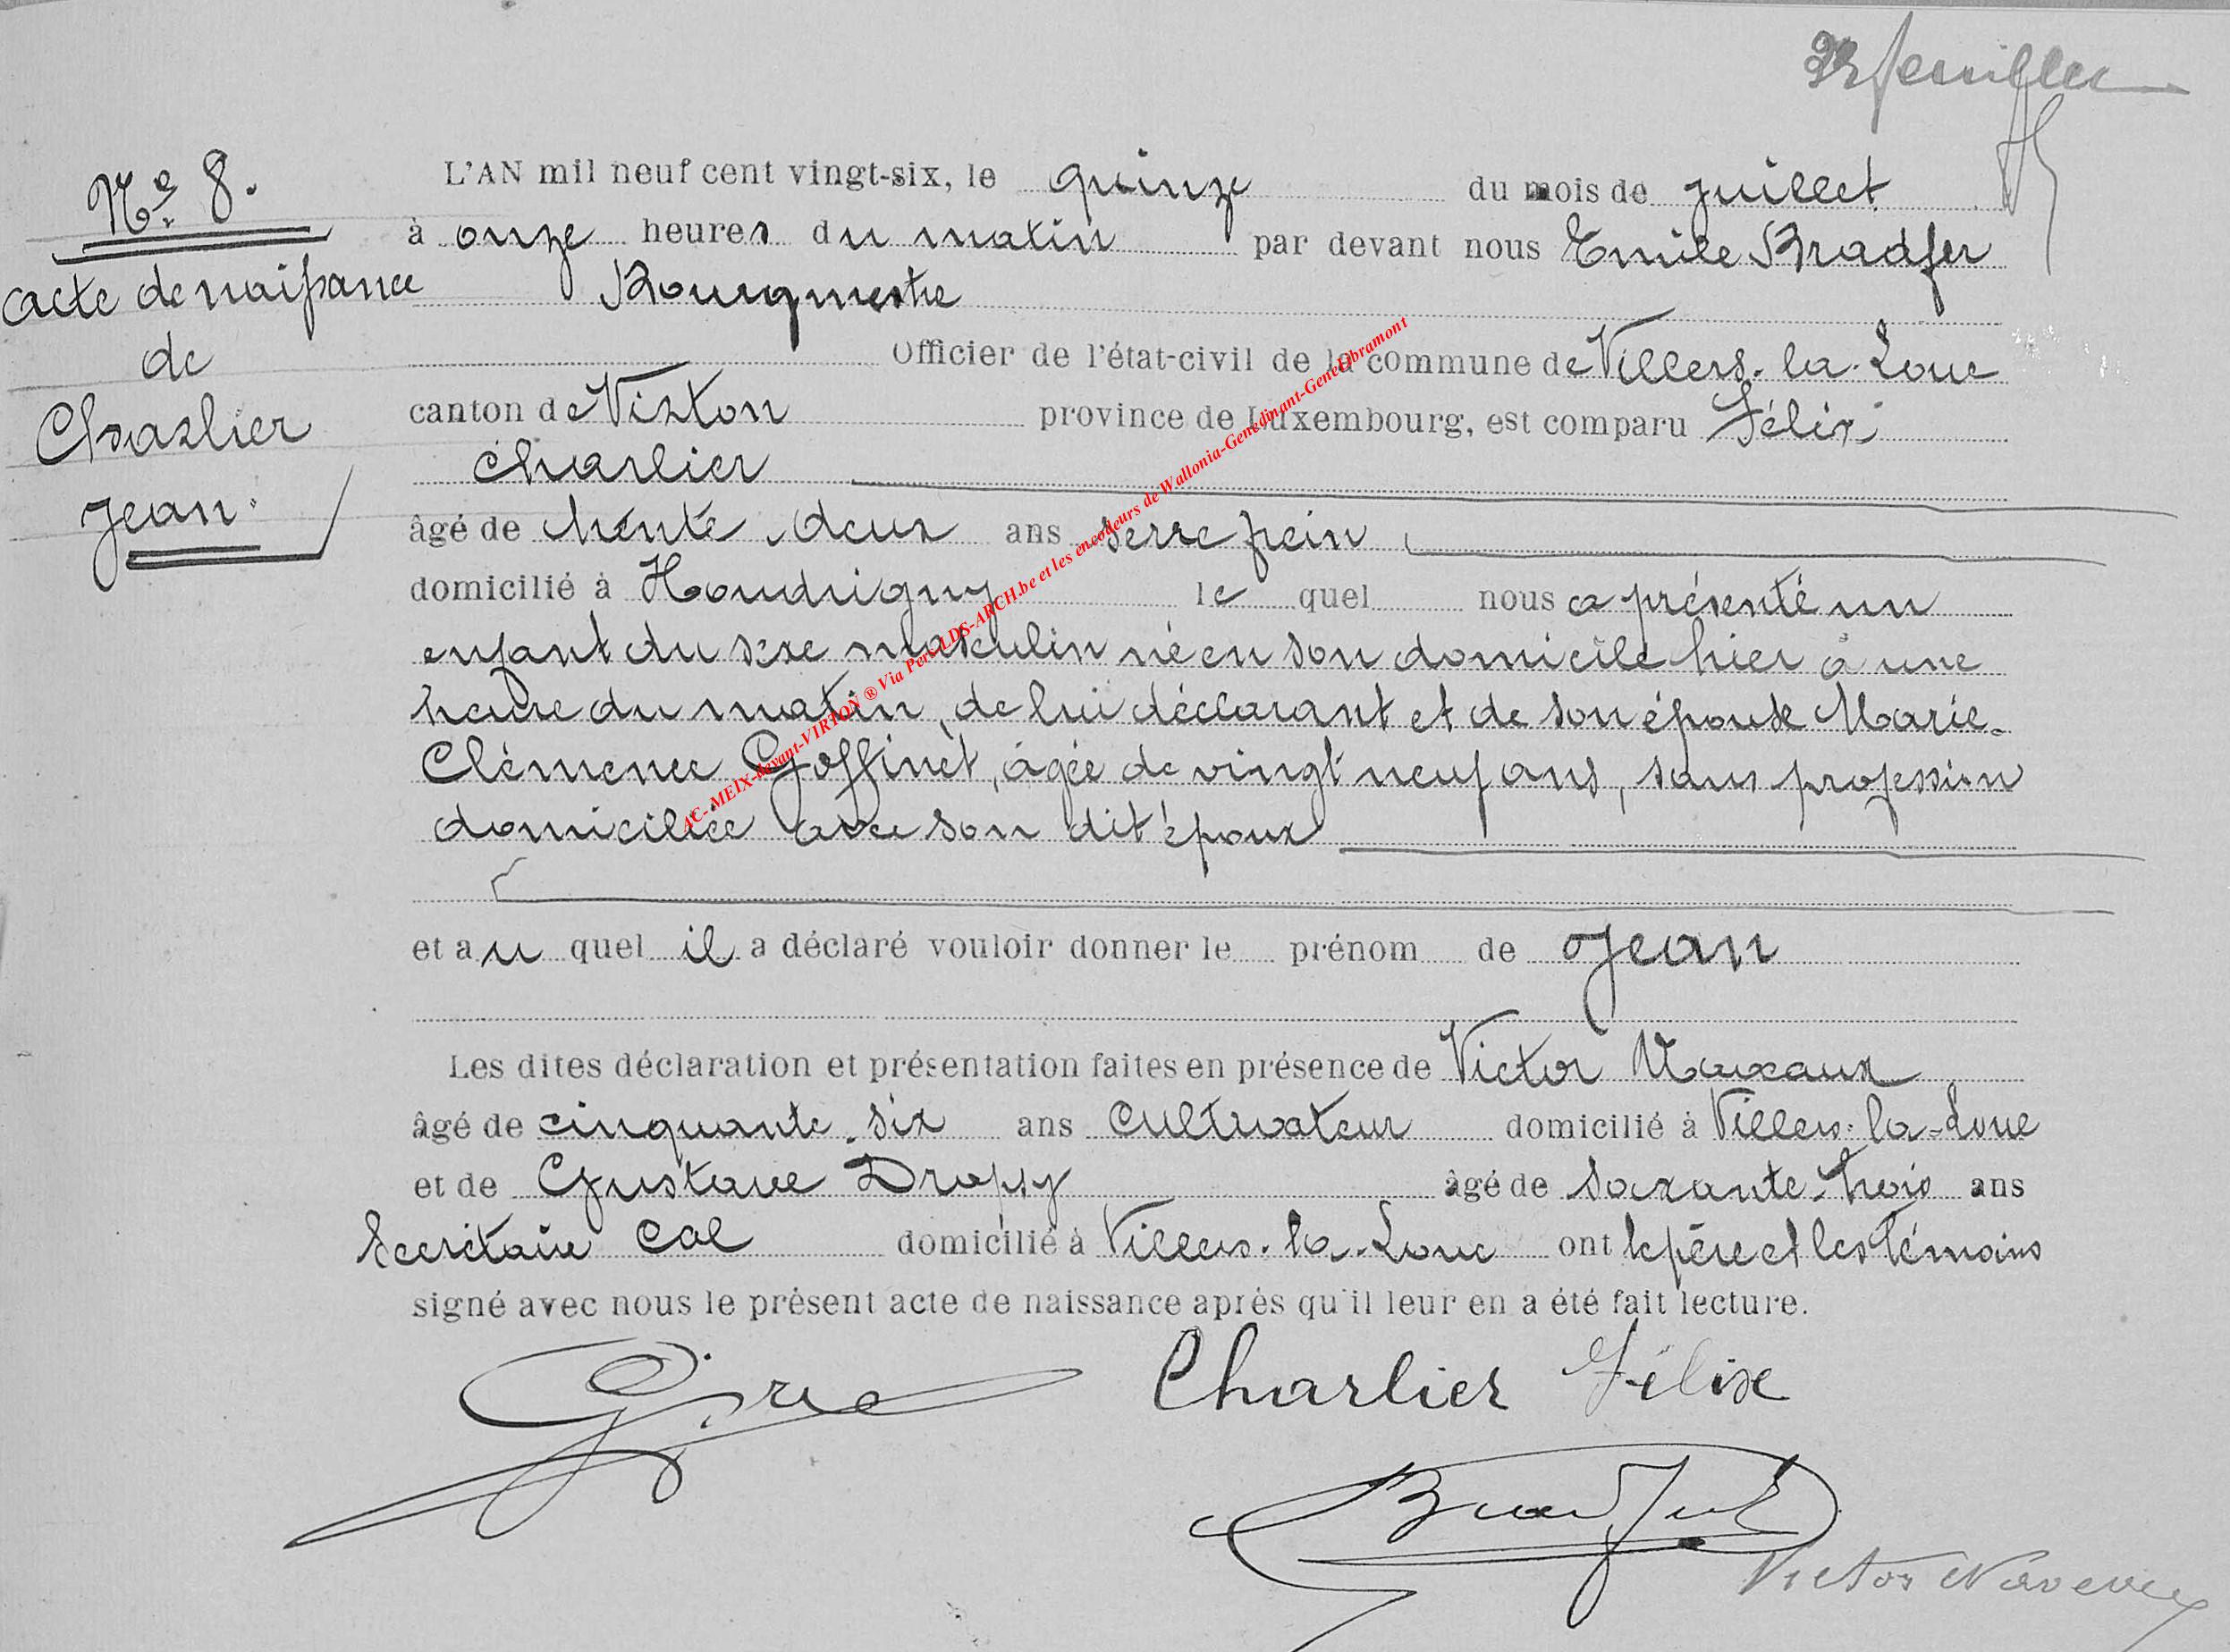 feuillet
N° 8.
acte de naissance
de
Charlier
Jean.
L'AN mil neuf cent vingt-six, le quinze du mois de juillet
à onze heures du matin par devant nous Emile Bradfer
Bourgmestre
Officier de l'état-civil de la commune de Villers-la-Loue
canton de Virton province de Luxembourg, est comparu Félix
Charlier
âgé de trente-deux ans serre frein
domicilié à Houdrigny le quel nous a présenté un
enfant du sexe masculin né en son domicile hier à une
heure du matin, de lui déclarant et de son épouse Marie-
Clémence Goffinet, âgée de vingt neuf ans, sans profession
domiciliée avec son dit époux
et au quel il a déclaré vouloir donner le prénom de Jean
Les dites déclaration et présentation faites en présence de Victor
âgé de cinquante-six ans cultivateur domicilié à Villers-la-Loue
et de Gustave Dropsy âgé de soixante-trois ans
Secrétaire Cal domicilié à Villers-la-Loue ont le père et les témoins
signé avec nous le présent acte de naissance après qu'il leur en a été fait lecture.
Charlier Félix
Bradfer
Victor
AC-MEIX-devant-VIRTON ® Via Pers-LDS-ARCH.be et les encodeurs de Wallonia-Genedinant-GeneLibramont